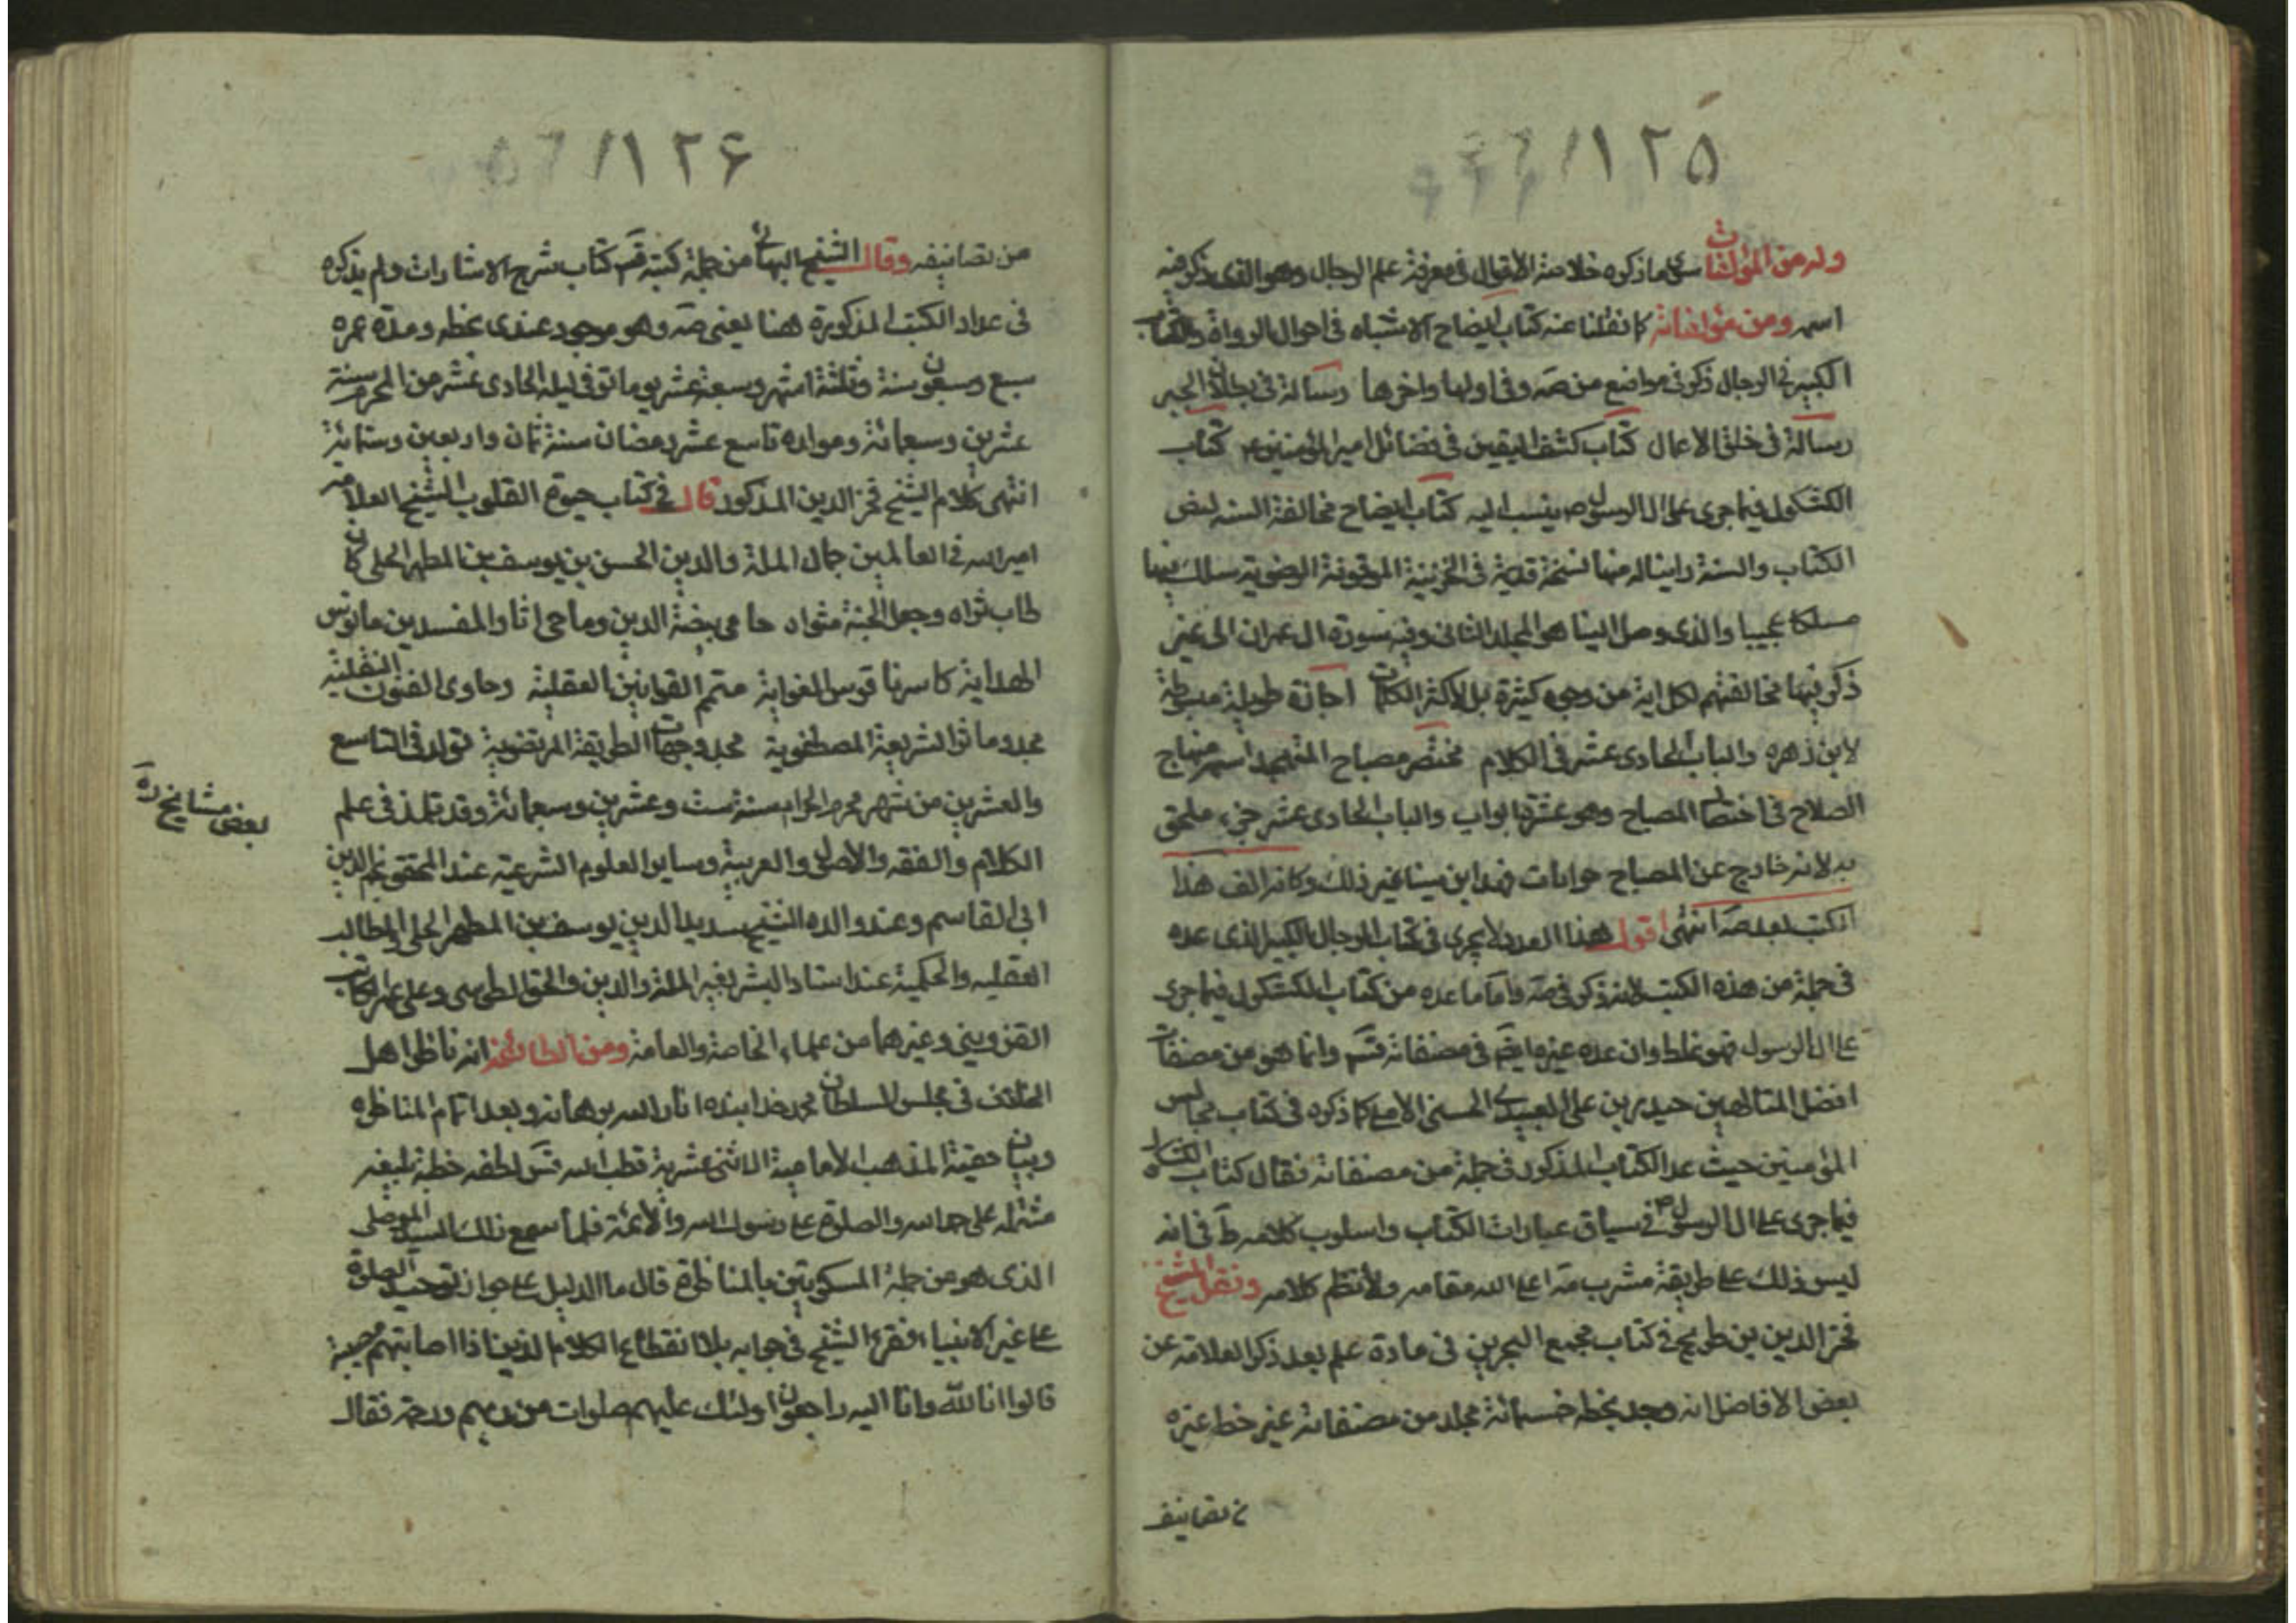 ١٢٥
وله من المؤلفات سوى ما ذكره خلاصة الأقوال في معرفة علم الرجال وهو الذي ذكر فيه
اسمه ومن مؤلفاته كما نقلنا عنه كتاب ايضاح الاشتباه في احوال الرواة والكتاب
الكبير في الرجال ذكر في مواضع من صه وفي اولها واخرها رسالة في بطلان الجبر
رسالة في خلق الاعمال كتاب كشف اليقين في فضائل امير المؤمنين ع كتاب
الكشكول فيما جرى على ال الرسول ص ينسب اليه كتاب ايضاح مخالفة السنه لنص
الكتاب والسنة راينا له منها نسخة قديمة في الخزينة الموقوفة الرضوية سلك فيها
مسلكا عجيبا والذي وصل الينا هو المجلد الثاني وفيه سورة ال عمران الى غير
ذكر فيها مخالفتهم لكل اية من وجوه كثيرة بل لاكثر الكلمات اجازة طويلة مبسوطة
لابن زهره والباب الحادى عشر في الكلام مختصر مصباح المتهجد اسمه منهاج
الصلاح في اختصار المصباح وهو عشرة ابواب والباب الحادى عشر جزء ملحق
به لانه خارج عن المصباح جوابات مهدا ابن سينا غير ذلك وكانه الف هذا
الكتب بعد صه انتهى اقول هذا العدد لا يجرى في كتاب الرجال الكبير الذي عده
في جملة من هذه الكتب لانه ذكر في صه واما ما عده من كتاب الكشكول فيما جرى
على ال الرسول فهو غلط وان عده غيره ايضم في مصنفاته قسم وانما هو من مصنفات
افضل المتالهين حيدر بن على العبيدي الحسيني الاملي كما ذكره في كتاب مجالس
المؤمنين حيث عد الكتاب المذكور في جملة من مصنفاته فقال كتاب الكشكول
فيما جرى على ال الرسول ص في سياق عبارات الكتاب واسلوب كلامه ط في انه
ليس ذلك على طريقة مشرب مه اعلى الله مقامه ولا نظم كلامه ونقل الشيخ
فخر الدين بن طريح في كتاب مجمع البحرين في مادة علم بعد ذكر العلامة عن
بعض الافاضل انه وجد بخطه خمسمائة مجلد من مصنفاته غير خط غيره
من تصانيفه
١٢٦
من تصانيفه وقال الشيخ البهائي من جملة كتبه قسم كتاب شرح الاشارات ولم يذكره
في عداد الكتب المذكورة هنا يعني صه وهو موجود عندى بخطه ومدة عمره
سبع وسبعون سنة وثلثة اشهر وسبعة عشر يوما توفي ليلة الحادى عشر من المحرم سنة
عشرين وسبعمائة ومولده تاسع عشر رمضان سنة ثمان واربعين وستمائة
انتهى كلام الشيخ فخر الدين المذكور قال في كتاب حيوة القلوب الشيخ العلامه
امير الله في العالمين جمال الملة والدين الحسن بن يوسف بن المطهر الحلي كان
طاب ثراه وجعل الجنة مثواه حامى بيضة الدين وماحي اثار المفسدين ناموس
الهداية كاسر ناقوس الغواية متمم القوانين العقلية وحاوى الفنون النقلية
مجدد ماثر الشريعة المصطفوية محدد جهات الطريقة المرتضوية تولد في التاسع
والعشرين من شهر محرم الحرام سنة ست وعشرين وسبعمائة وقد تلمذ في علم
بعض مشايخ ره
الكلام والفقه والأصول والعربية وساير العلوم الشرعية عند المحقق نجم الدين
ابي القاسم وعند والده الشيخ سديد الدين يوسف بن المطهر الحلى والمطالب
العقليه والحكمية عند استاد البشر نصير الملة والدين والحق الطوسي وعلى عمر الكاتب
القزويني وغيرهما من علماء الخاصة والعامة ومن لطائفه انه ناظر اهل
الخلاف في مجلس السلطان محمد خدا بنده انار الله برهانه وبعد اتمام المناظره
وبيان حقية المذهب الامامية الاثنى عشرية خطب الله قدس لطفه خطبة بليغه
مشتمله على حمد الله والصلوة على رسول الله والأئمة فلما سمع ذلك السيد الموصلى
الذى هو من جملة المسكوتين بالمناظرة قال ما الدليل على جواز توجيه الصلوة
على غير الانبياء فقرء الشيخ في جوابه بلا انقطاع الكلام الذين اذا اصابتهم مصيبة
قالوا انا لله وانا اليه راجعون اولئك عليهم صلوات من ربهم ورحمة فقال